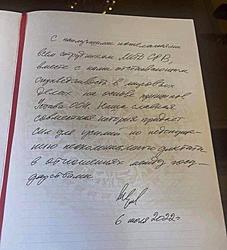 С наилучшими пожеланиями
всем сотрудникам МИД СРВ,
вместе с нами отстаивающим
справедливость в мировых
делах на основе принципов
Устава ООН. Наша славная
совместная история придает
сил для усилий по недопущению
неоколониального диктата
в отношениях между государствами.
6 июля 2022 г.